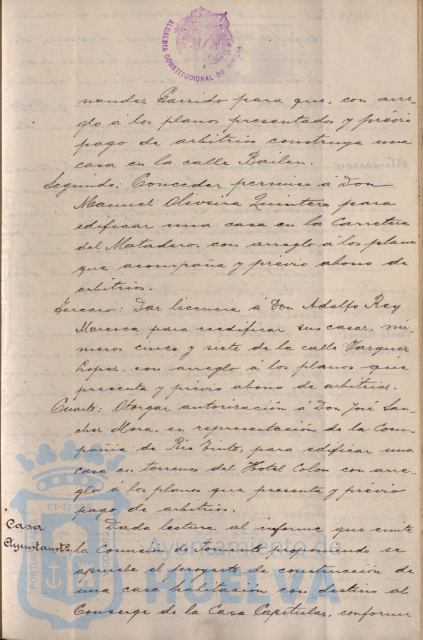 ALCALDIA CONSTITUCIONAL DE HUELVA
nander Garrido para que, con arre-
glo á los planos presentados y previo
pago de arbitrios construya una
casa en la calle Bailen.
Segundo: Conceder permiso á Don
Manuel Oliveira Quintero para
edificar una casa en la Carretera
del Matadero, con arreglo á los planos
que acompaña y previo abono de
arbitrios.
Tercero: Dar licencia á Don Adolfo Rey
Marenca para reedificar sus casas, nú-
meros cinco y siete de la calle Vazquez
Lopez, con arreglo á los planos que
presenta y previo abono de arbitrios.
Cuarto: Otorgar autorización á Don José San-
chez Mora, en representación de la Com-
pañia de Rio Tinto, para edificar una
casa en terrenos del Hotel Colon con arre-
glo á los planos que presenta y previo
pago de arbitrios.
Casa
Ayuntamto.
Dada lectura al informe que emite
la Comisión de Fomento proponiendo se
apruebe el proyecto de construcción de
una casa habitación con destino al
Conserge de la Casa Capitular, conforme
Ayuntamiento de
HUELVA